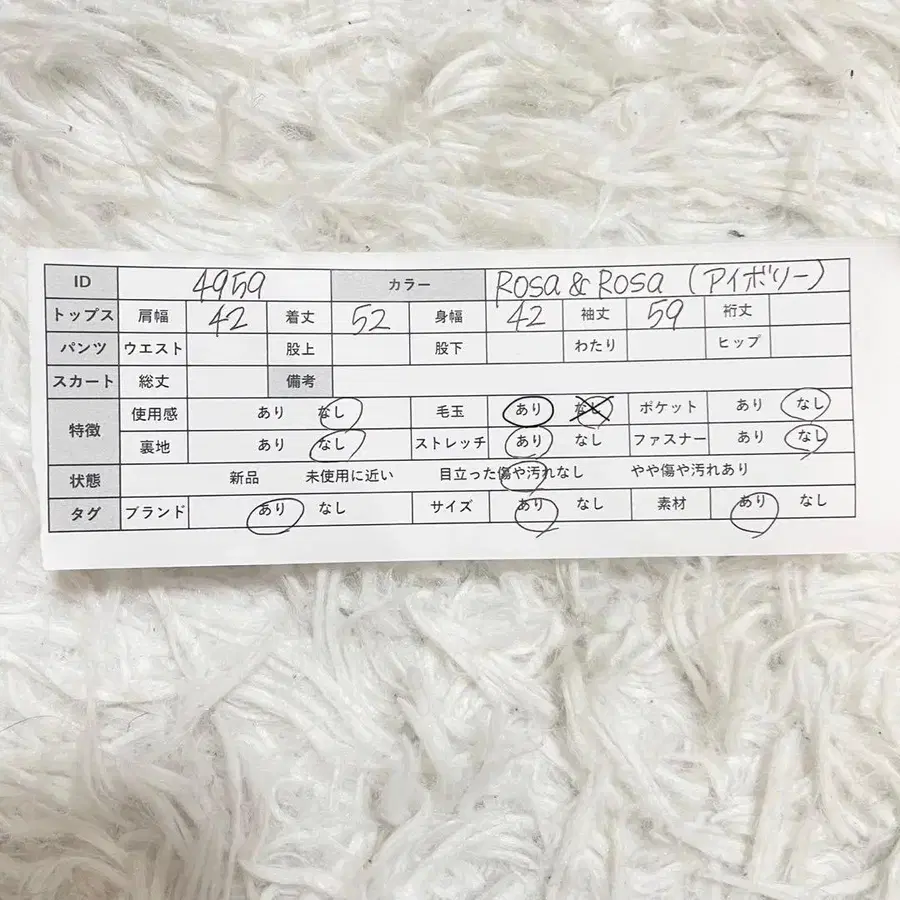 ID 4959 カラー Rosa & Rosa (アイボリー)
トップス 肩幅 42 着丈 52 身幅 42 袖丈 59 裄丈
パンツ ウエスト 股上 股下 わたり ヒップ
スカート 総丈 備考
特徴 使用感 あり なし 毛玉 あり なし ポケット あり なし
裏地 あり なし ストレッチ あり なし ファスナー あり なし
状態 新品 未使用に近い 目立った傷や汚れなし やや傷や汚れあり
タグ ブランド あり なし サイズ あり なし 素材 あり なし